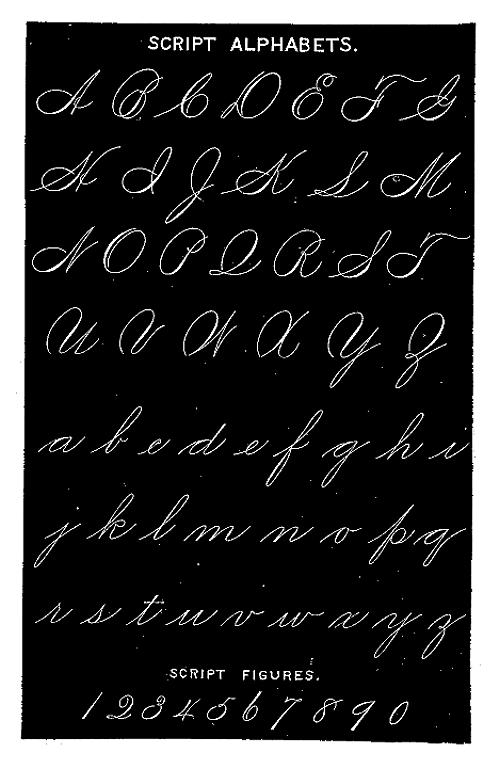 SCRIPT ALPHABETS.
A B C D E F G
H I J K L M
N O P Q R S T
U V W X Y Z
a b c d e f g h i
j k l m n o p q
r s t u v w x y z
SCRIPT FIGURES.
1 2 3 4 5 6 7 8 9 0